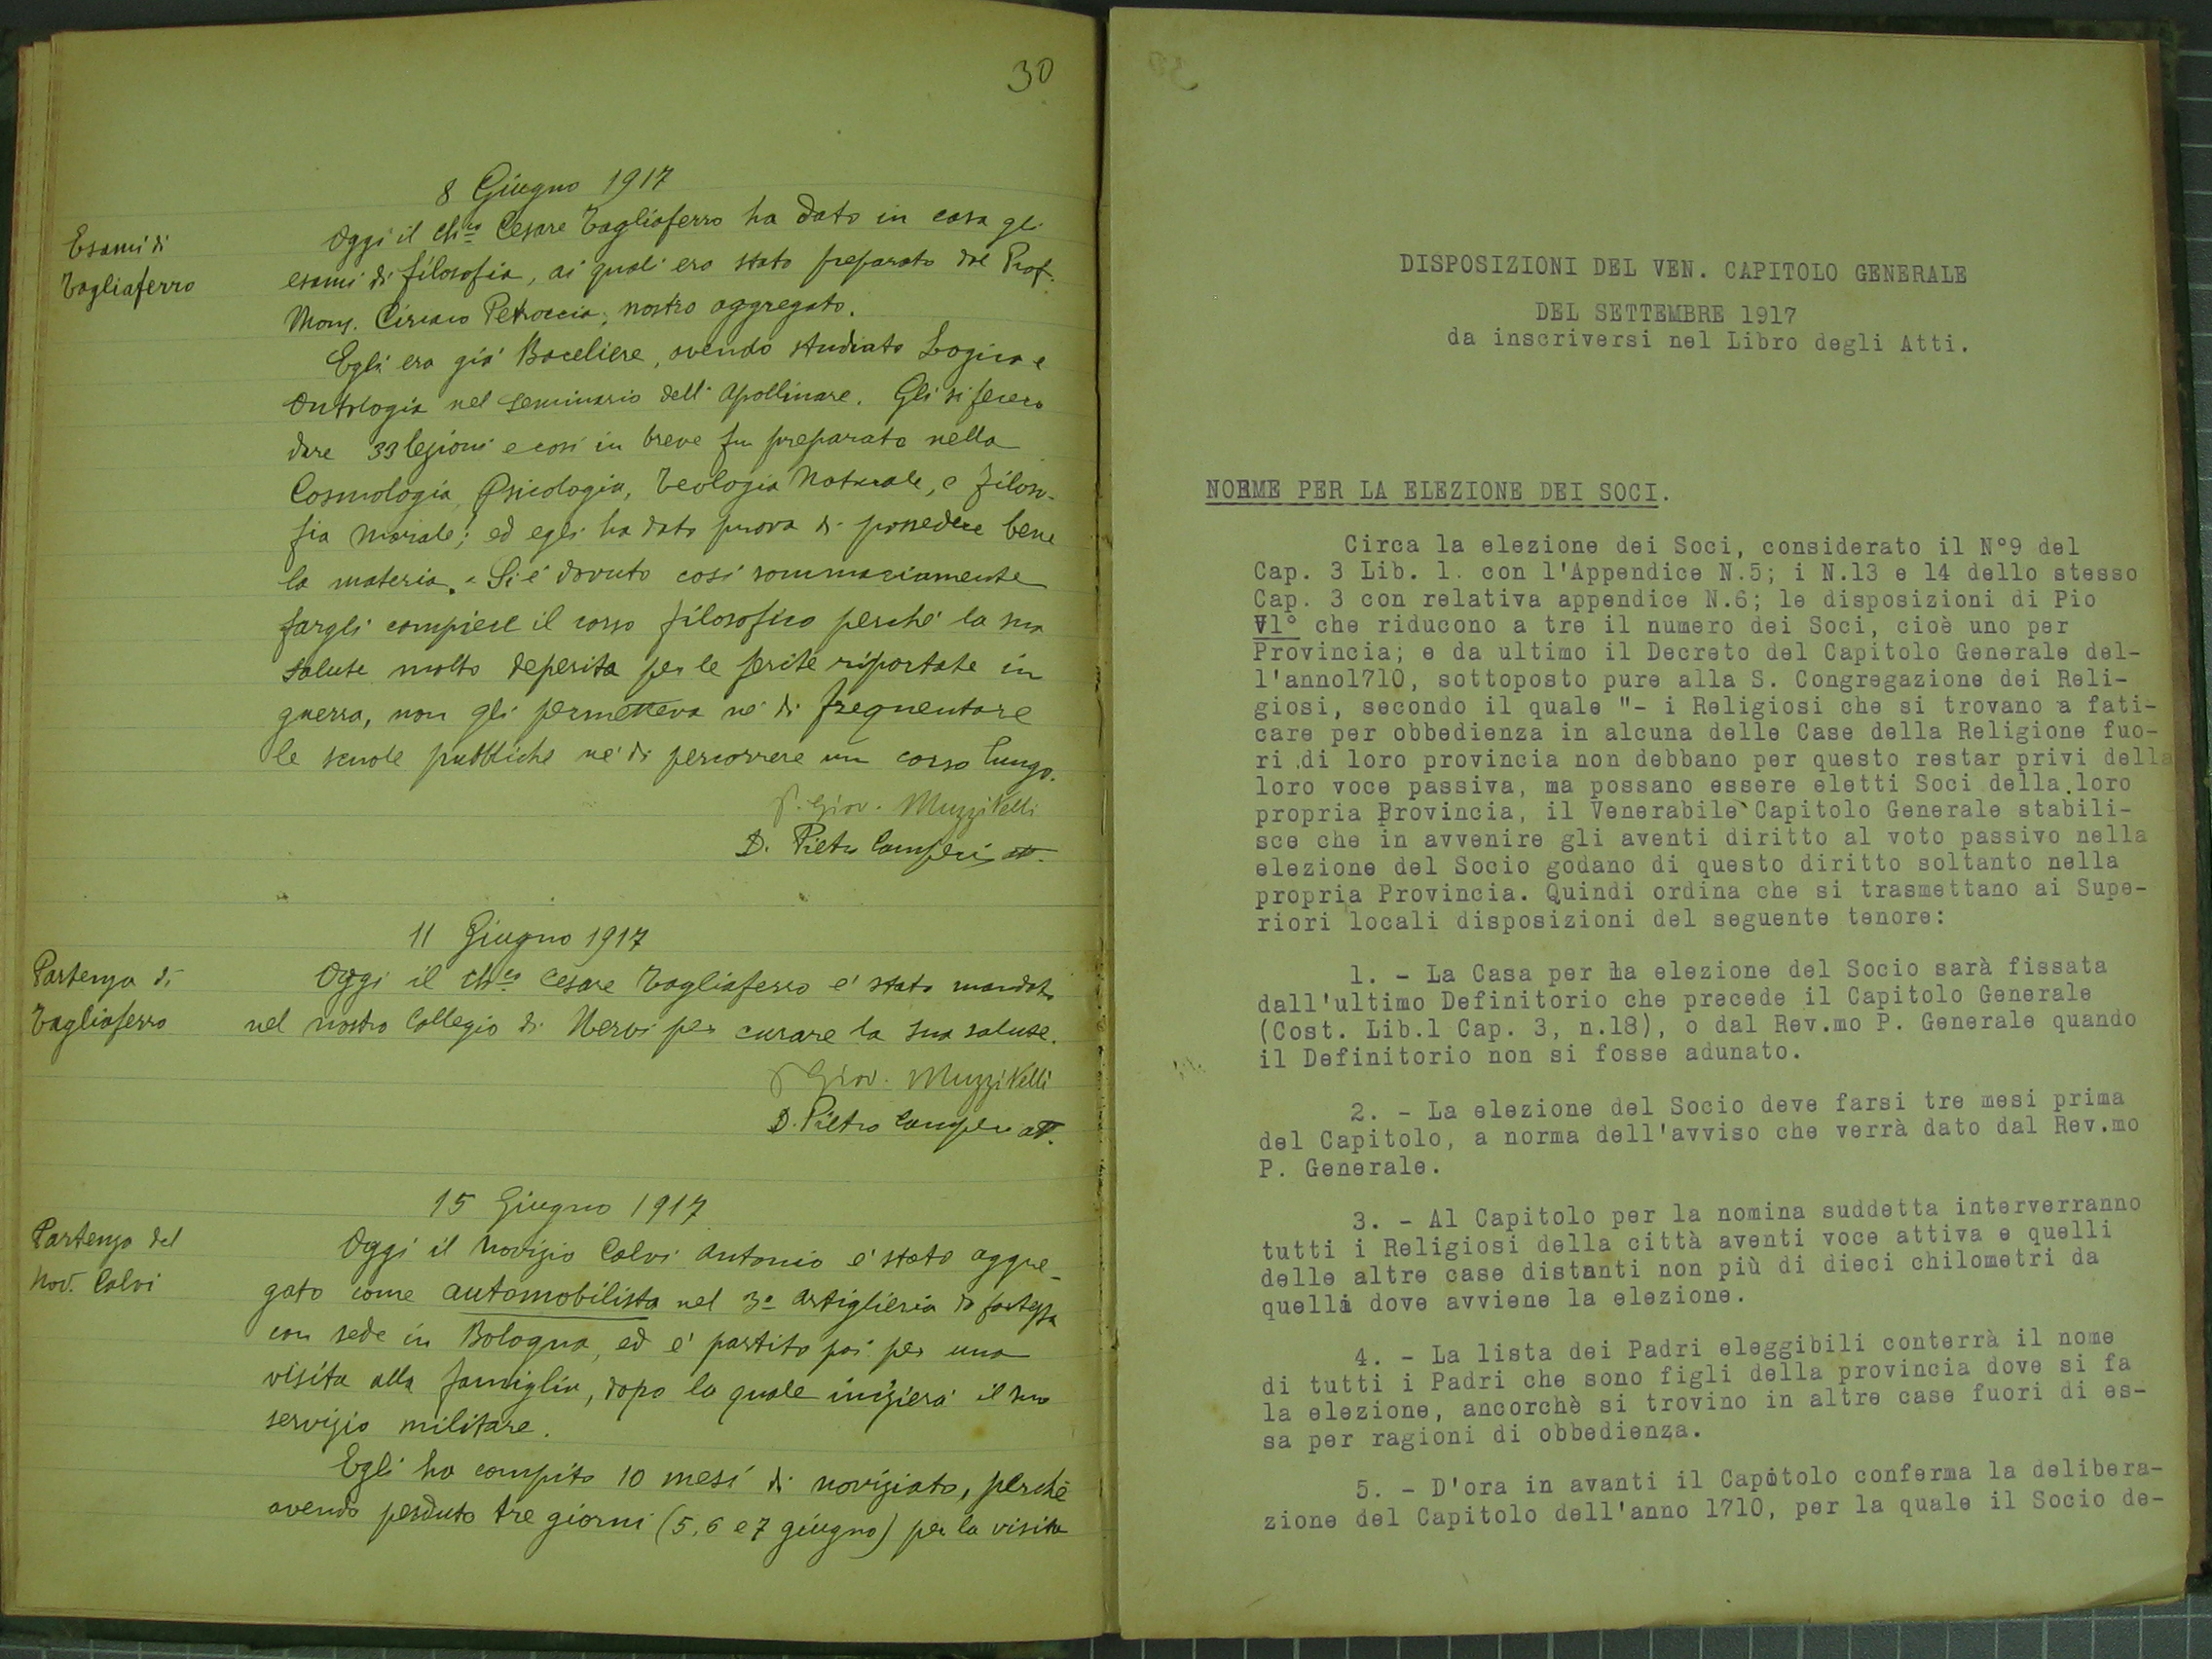 30
8 Giugno 1917
Esami di
Tagliaferro
Oggi il Ch.co Cesare Tagliaferro ha dato in casa gli
esami di filosofia, ai quali era stato preparato dal Prof.
Mons. Ciriaco Petroccia, nostro aggregato.
Egli era già Baceliere, avendo studiato Logica e
Ontologia nel seminario dell'Apollinare. Gli si fecero
dare 33 lezioni e così in breve fu preparato nella
Cosmologia, Psicologia, Teologia Naturale, e Filoso-
fia Morale; ed egli ha dato prova di possedere bene
la materia. Si è dovuto così sommariamente
fargli compiere il corso filosofico perché la sua
salute molto deperita per le ferite riportate in
guerra, non gli permetteva né di frequentare
le scuole pubbliche né di percorrere un corso lungo.
P. Giov. Muzzitelli
D. Pietro Camperi att.
11 Giugno 1917
Partenza di
Tagliaferro
Oggi il Ch.co Cesare Tagliaferro è stato mandato
nel nostro Collegio di Nervi per curare la sua salute.
P. Giov. Muzzitelli
D. Pietro Camperi att.
15 Giugno 1917
Partenza del
Nov. Calvi
Oggi il Novizio Calvi Antonio è stato aggre-
gato come automobilista nel 3º Artiglieria da fortezza
con sede in Bologna, ed è partito poi per una
visita alla famiglia, dopo la quale inizierà il suo
servizio militare.
Egli ha compito 10 mesi di noviziato, perchè
avendo perduto tre giorni (5, 6 e 7 giugno) per la visita
DISPOSIZIONI DEL VEN. CAPITOLO GENERALE
DEL SETTEMBRE 1917
da inscriversi nel Libro degli Atti.
NORME PER LA ELEZIONE DEI SOCI.
Circa la elezione dei Soci, considerato il N°9 del
Cap. 3 Lib. 1. con l'Appendice N.5; i N.13 e 14 dello stesso
Cap. 3 con relativa appendice N.6; le disposizioni di Pio
V1° che riducono a tre il numero dei Soci, cioè uno per
Provincia; e da ultimo il Decreto del Capitolo Generale del-
l'anno1710, sottoposto pure alla S. Congregazione dei Reli-
giosi, secondo il quale "- i Religiosi che si trovano a fati-
care per obbedienza in alcuna delle Case della Religione fuo-
ri di loro provincia non debbano per questo restar privi della
loro voce passiva, ma possano essere eletti Soci della loro
propria Provincia, il Venerabile Capitolo Generale stabili-
sce che in avvenire gli aventi diritto al voto passivo nella
elezione del Socio godano di questo diritto soltanto nella
propria Provincia. Quindi ordina che si trasmettano ai Supe-
riori locali disposizioni del seguente tenore:
1. - La Casa per la elezione del Socio sarà fissata
dall'ultimo Definitorio che precede il Capitolo Generale
(Cost. Lib.1 Cap. 3, n.18), o dal Rev.mo P. Generale quando
il Definitorio non si fosse adunato.
2. - La elezione del Socio deve farsi tre mesi prima
del Capitolo, a norma dell'avviso che verrà dato dal Rev.mo
P. Generale.
3. - Al Capitolo per la nomina suddetta interverranno
tutti i Religiosi della città aventi voce attiva e quelli
delle altre case distanti non più di dieci chilometri da
quella dove avviene la elezione.
4. - La lista dei Padri eleggibili conterrà il nome
di tutti i Padri che sono figli della provincia dove si fa
la elezione, ancorchè si trovino in altre case fuori di es-
sa per ragioni di obbedienza.
5. - D'ora in avanti il Capitolo conferma la delibera-
zione del Capitolo dell'anno 1710, per la quale il Socio de-